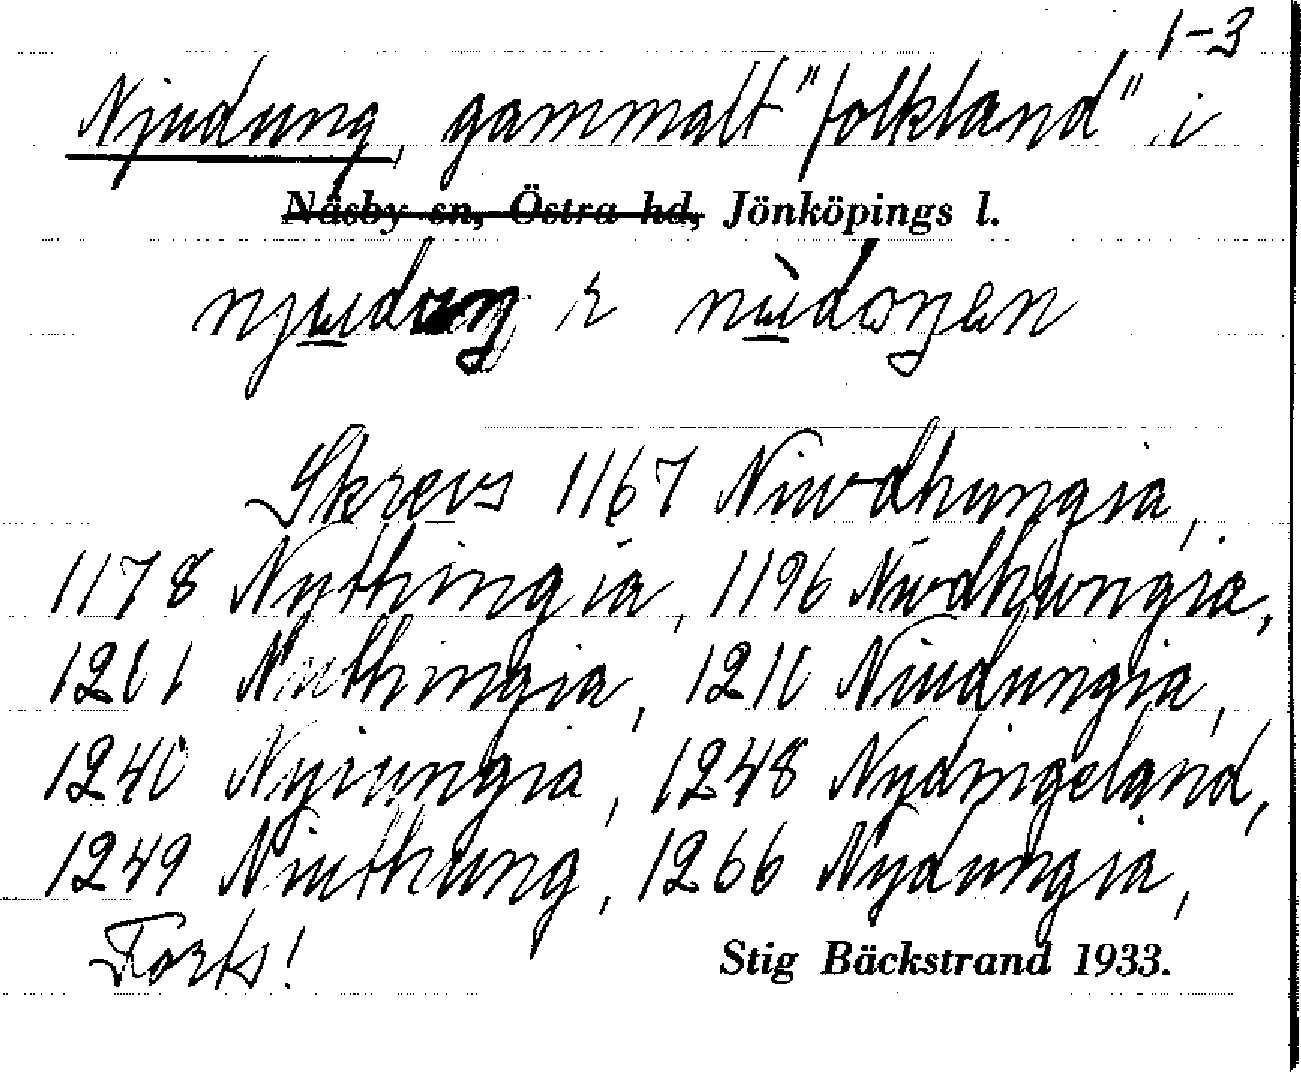 1-3
Njudung, gammalt "folkland" i
Näsby sn, Östra hd, Jönköpings l.
njudung
Skrevs 1167 Niudhungia,
1178 Nythingia, 1196 Niudhungia,
1201 Niuthingia, 1210 Niudungia,
1240 Nyiungia, 1248 Nydingeland,
1249 Niuthung, 1266 Nydungia,
Forts!
Stig Bäckstrand 1933.